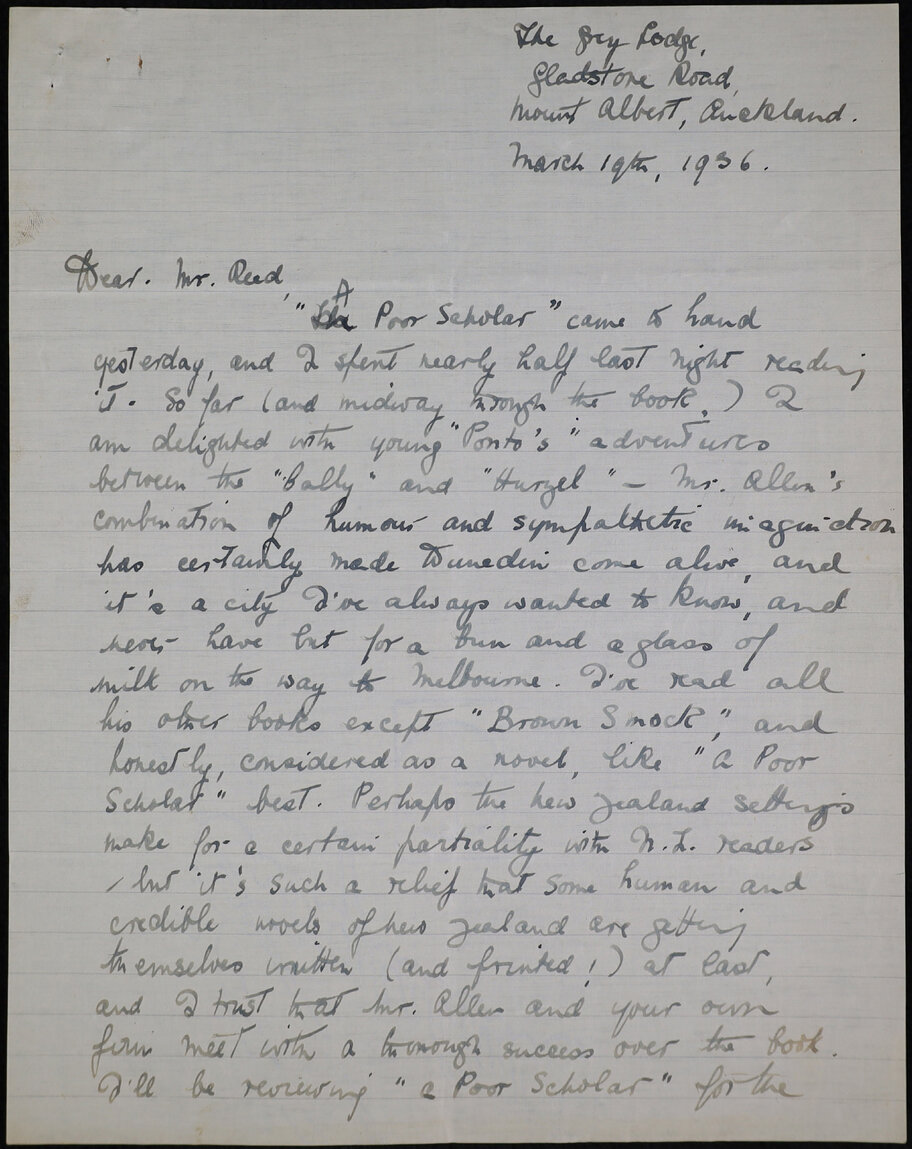 The Grey Lodge,
Gladstone Road,
Mount Albert, Auckland.
March 19th, 1936.
Dear. Mr. Reed,
"A Poor Scholar" came to hand
yesterday, and I spent nearly half last night reading
it. So far (and midway through the book,) I
am delighted with young "Ponto's" adventures
between the "Bally" and "Hurzel" – Mr. Allen's
combination of humour and sympathetic imagination
has certainly made Dunedin come alive, and
it's a city I've always wanted to know, and
never have but for a bun and a glass of
milk on the way to Melbourne. I've read all
his other books except "Brown Smock", and
honestly, considered as a novel, like "A Poor
Scholar" best. Perhaps the New Zealand settings
make for a certain partiality with N.Z. readers
– but it's such a relief that some human and
credible novels of New Zealand are getting
themselves written (and printed!) at last,
and I trust that Mr. Allen and your own
firm meet with a thorough success over the book.
I'll be reviewing "a Poor Scholar" for the